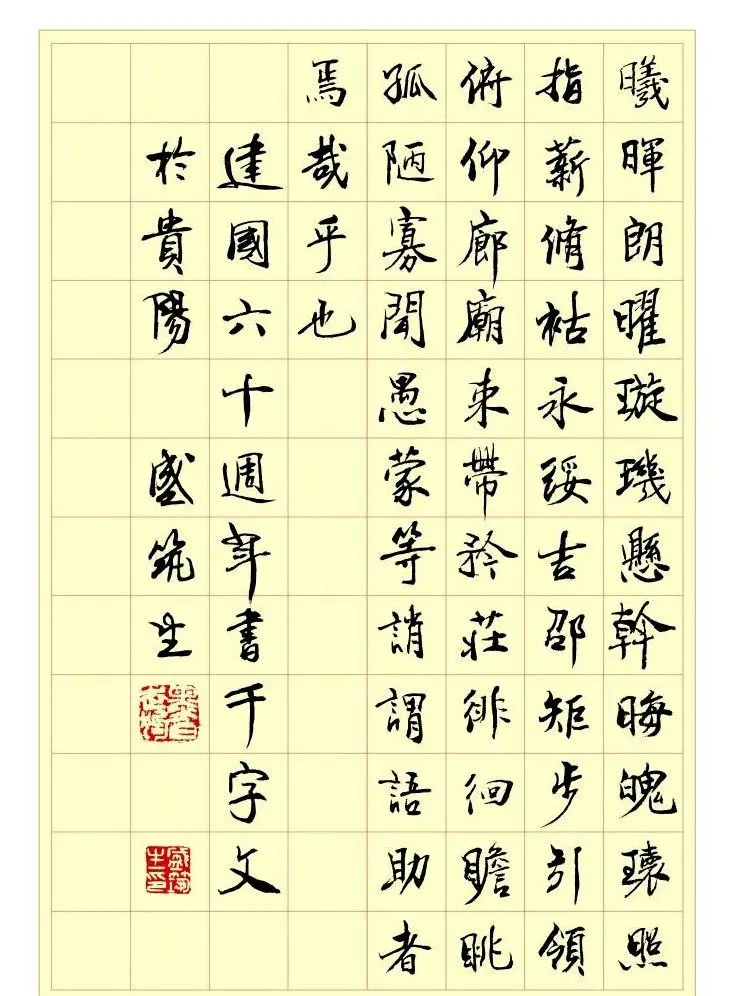 曦暉朗曜璇璣懸斡晦魄環照
指薪脩祜永綏吉邵矩步引領
俯仰廊廟束帶矜莊徘徊瞻眺
孤陋寡聞愚蒙等誚謂語助者
焉哉乎也
建國六十週年書千字文
於貴陽 盛筑生